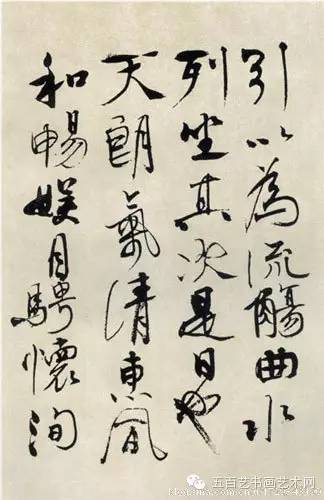 引以為流觴曲水
列坐其次是日也
天朗氣清惠風
和暢娛目騁懷洵
五百艺书画艺术网